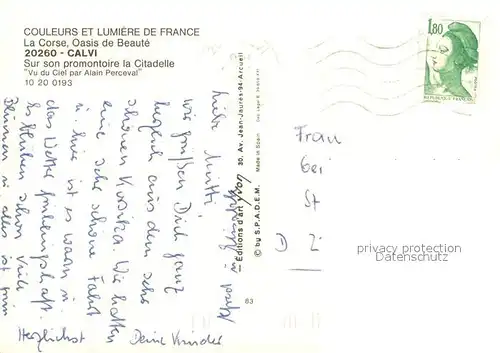 COULEURS ET LUMIÈRE DE FRANCE
La Corse, Oasis de Beauté
20260 - CALVI
Sur son promontoire la Citadelle
"Vu du Ciel par Alain Perceval"
10 20 0193
1,80
Liebe Mutti!
wir grüßen Dich ganz
herzlich aus dem sehr
schönen Korsika. Wir hatten
eine sehr schöne Fahrt
u. hier ist es warm u.
das Wetter frühlingshaft.
Es blühen schon viele
Blumen u. alles ist grün
Herzlichst Deine Kinder
Editions d'art yvon 30, Av. Jean-Jaurès-94-Arcueil
© by S.P.A.D.E.M. Made in Spain
83
Frau
bei
St
D
privacy protection
Datenschutz